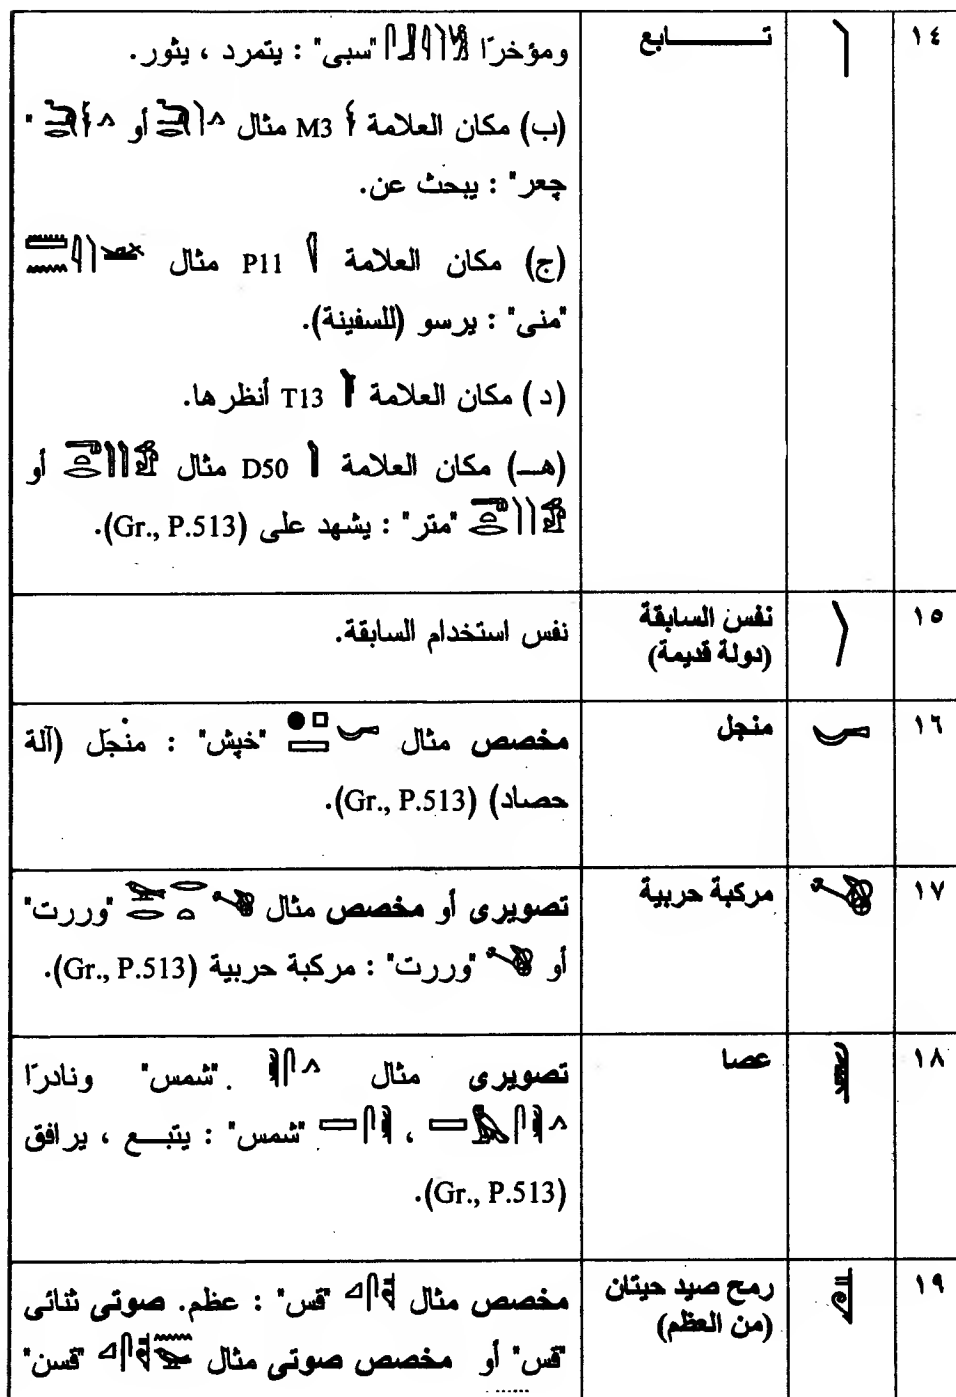 ١٤ تـــــــــابع ومؤخرًا "سبى" : يتمرد ، يثور.
(ب) مكان العلامة M3 مثال أو "
چعر" : يبحث عن.
(ج) مكان العلامة P11 مثال
"منى" : يرسو (للسفينة).
(د) مكان العلامة T13 أنظرها.
(هـ) مكان العلامة D50 مثال أو
"متر" : يشهد على (Gr., P.513).
١٥ نفس السابقة
(دولة قديمة)
نفس استخدام السابقة.
١٦ منجل
مخصص مثال "خپش" : منجل (آلة
حصاد) (Gr., P.513).
١٧ مركبة حربية
تصويرى أو مخصص مثال "وررت"
أو "وررت" : مركبة حربية (Gr., P.513).
١٨ عصا
تصويرى مثال "شمس" ونادرًا
، "شمس" : يتبـــع ، يرافق
(Gr., P.513).
١٩ رمح صيد حيتان
(من العظم)
مخصص مثال "قس" : عظم. صوتى ثنائى
"قس" أو مخصص صوتى مثال "قسن"